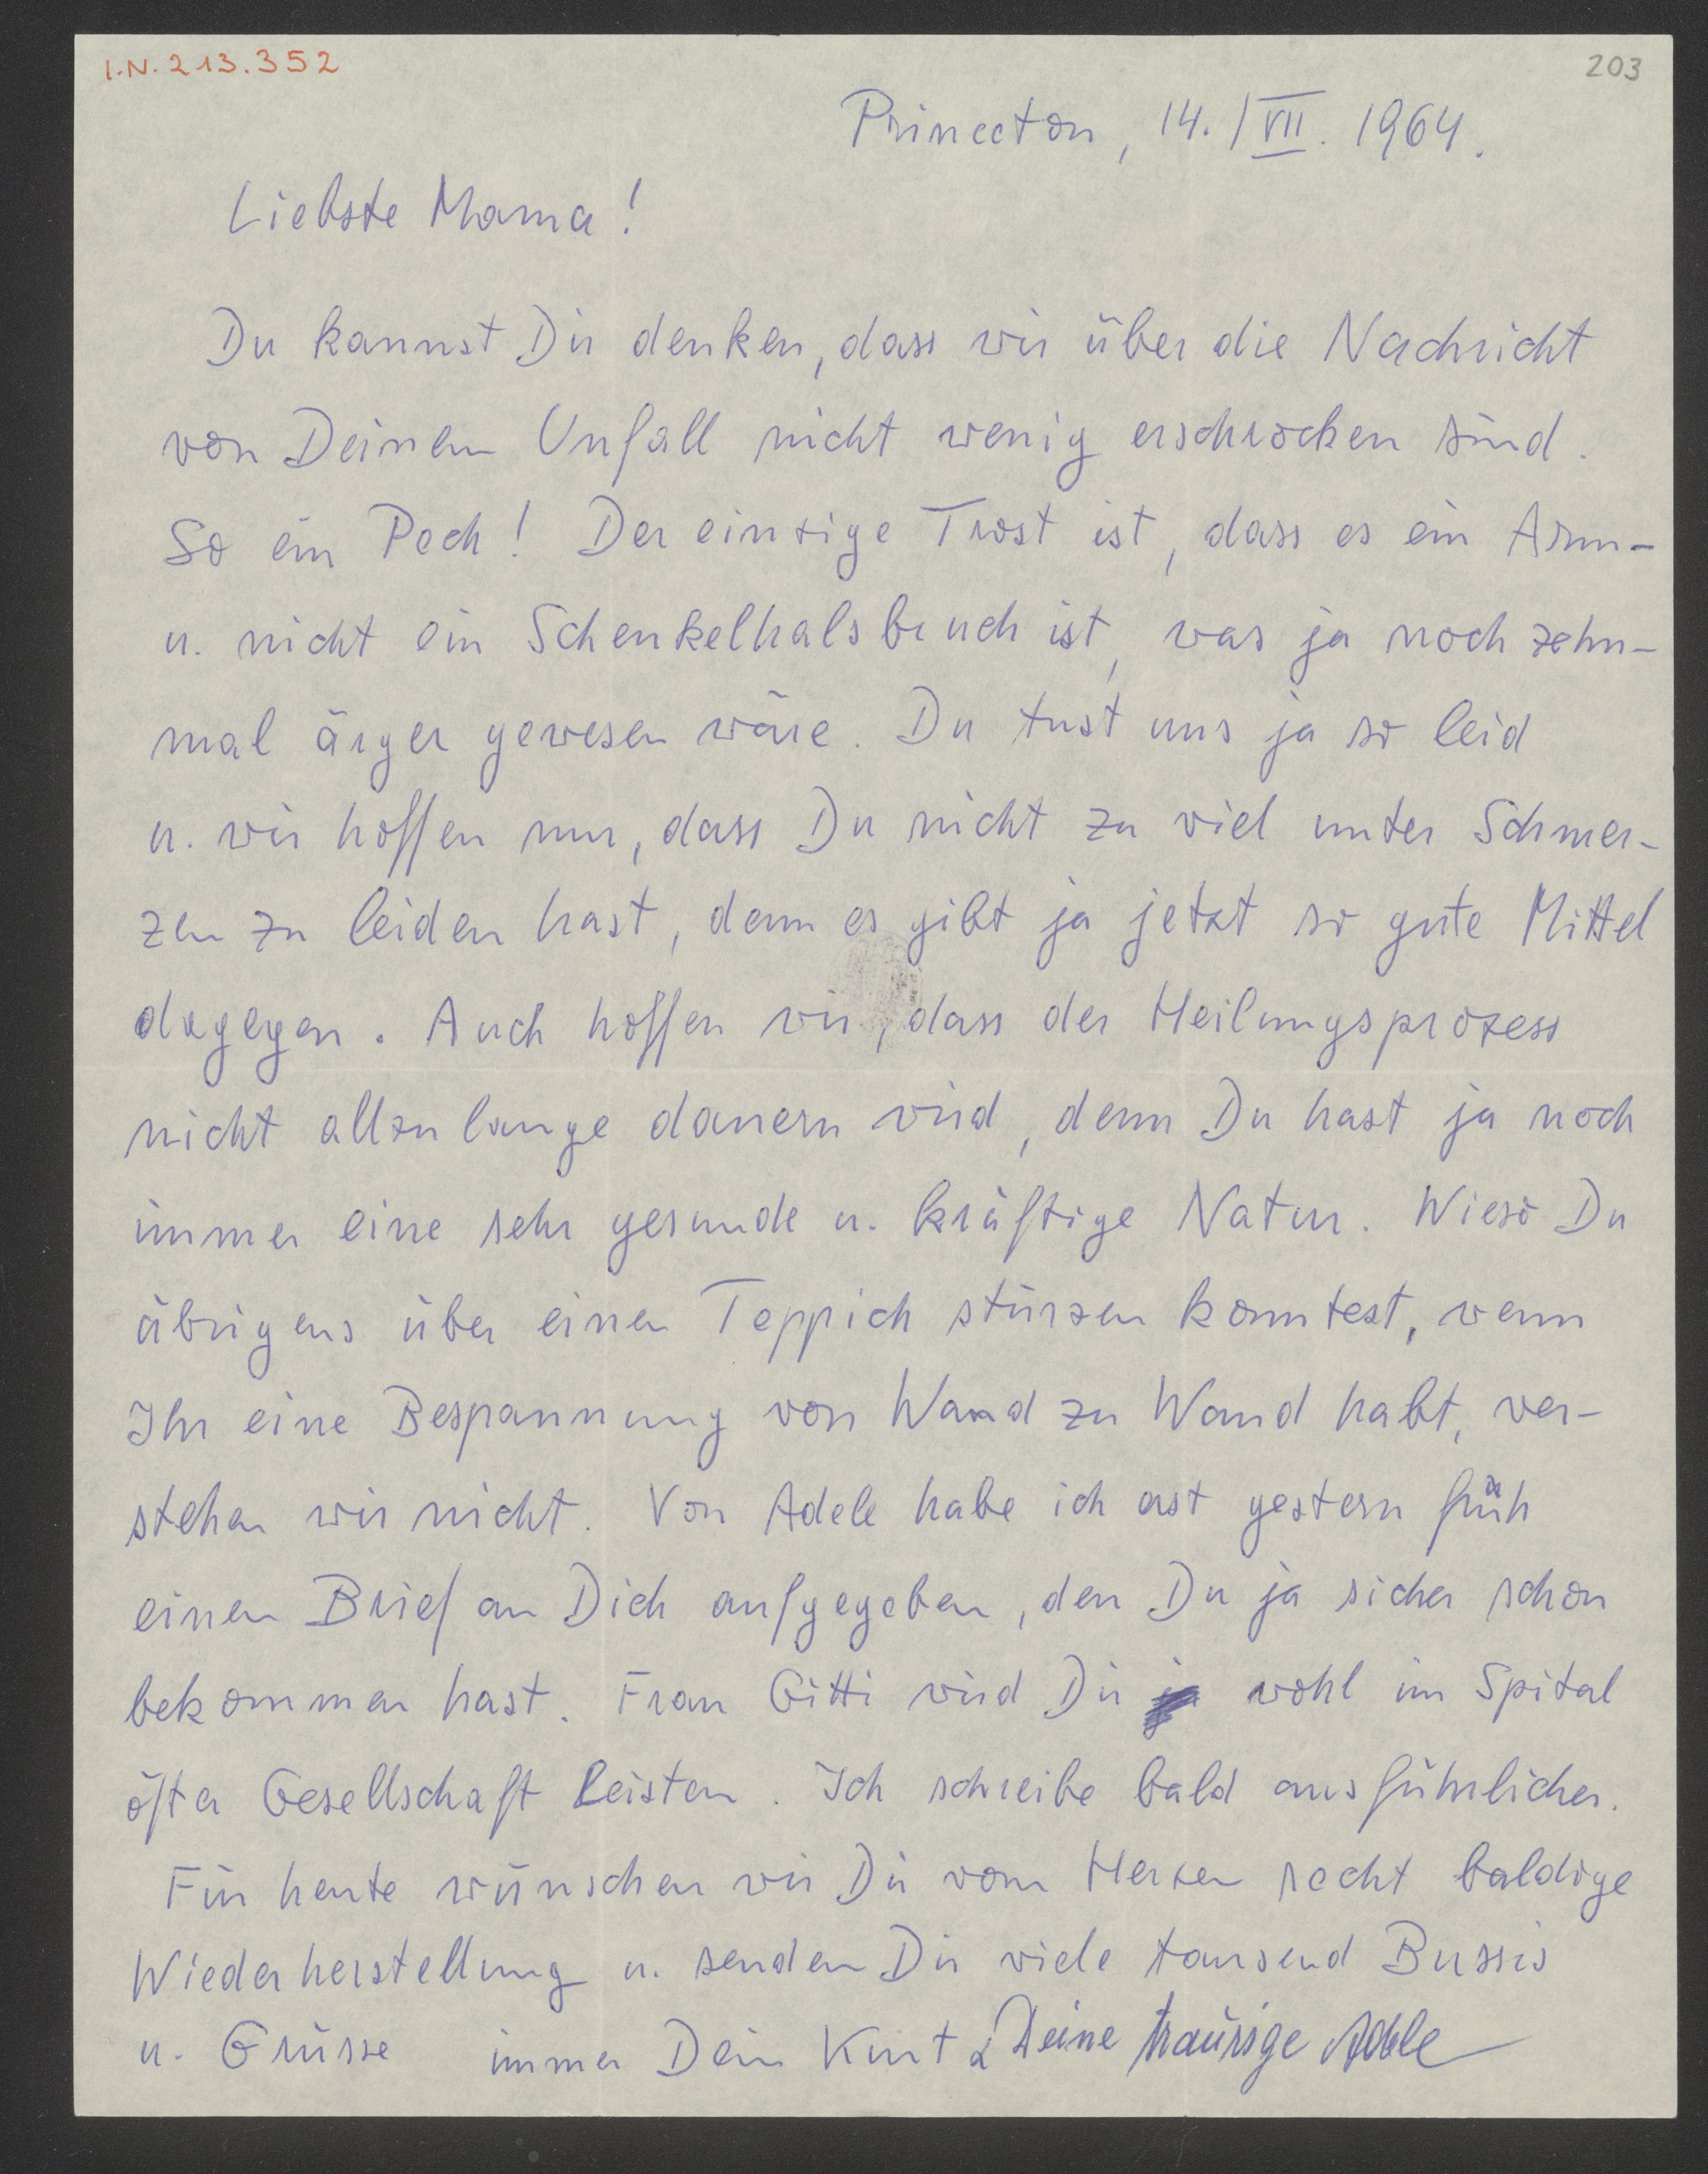 I.N. 213.352
203
Princeton, 14./VII. 1964.
Liebste Mama!
Du kannst Dir denken, dass wir über die Nachricht
von Deinem Unfall nicht wenig erschrocken sind.
So ein Pech! Der einzige Trost ist, dass es ein Arm-
u. nicht ein Schenkelhalsbruch ist, was ja noch zehn-
mal ärger gewesen wäre. Du tust uns ja so leid
u. wir hoffen nur, dass Du nicht zu viel unter Schmer-
zen zu leiden hast, denn es gibt ja jetzt so gute Mittel
dagegen. Auch hoffen wir, dass der Heilungsprozess
nicht allzu lange dauern wird, denn Du hast ja noch
immer eine sehr gesunde u. kräftige Natur. Wieso Du
übrigens über einen Teppich stürzen konntest, wenn
Ihr eine Bespannung von Wand zu Wand habt, ver-
stehen wir nicht. Von Adele habe ich erst gestern früh
einen Brief an Dich aufgegeben, den Du ja sicher schon
bekommen hast. Frau Gitti wird Dir ja wohl im Spital
öfter Gesellschaft leisten. Ich schreibe bald ausführlicher.
Für heute wünschen wir Dir vom Herzen recht baldige
Wiederherstellung u. senden Dir viele tausend Bussis
u. Grüsse immer Dein Kurt & Deine traurige Adele